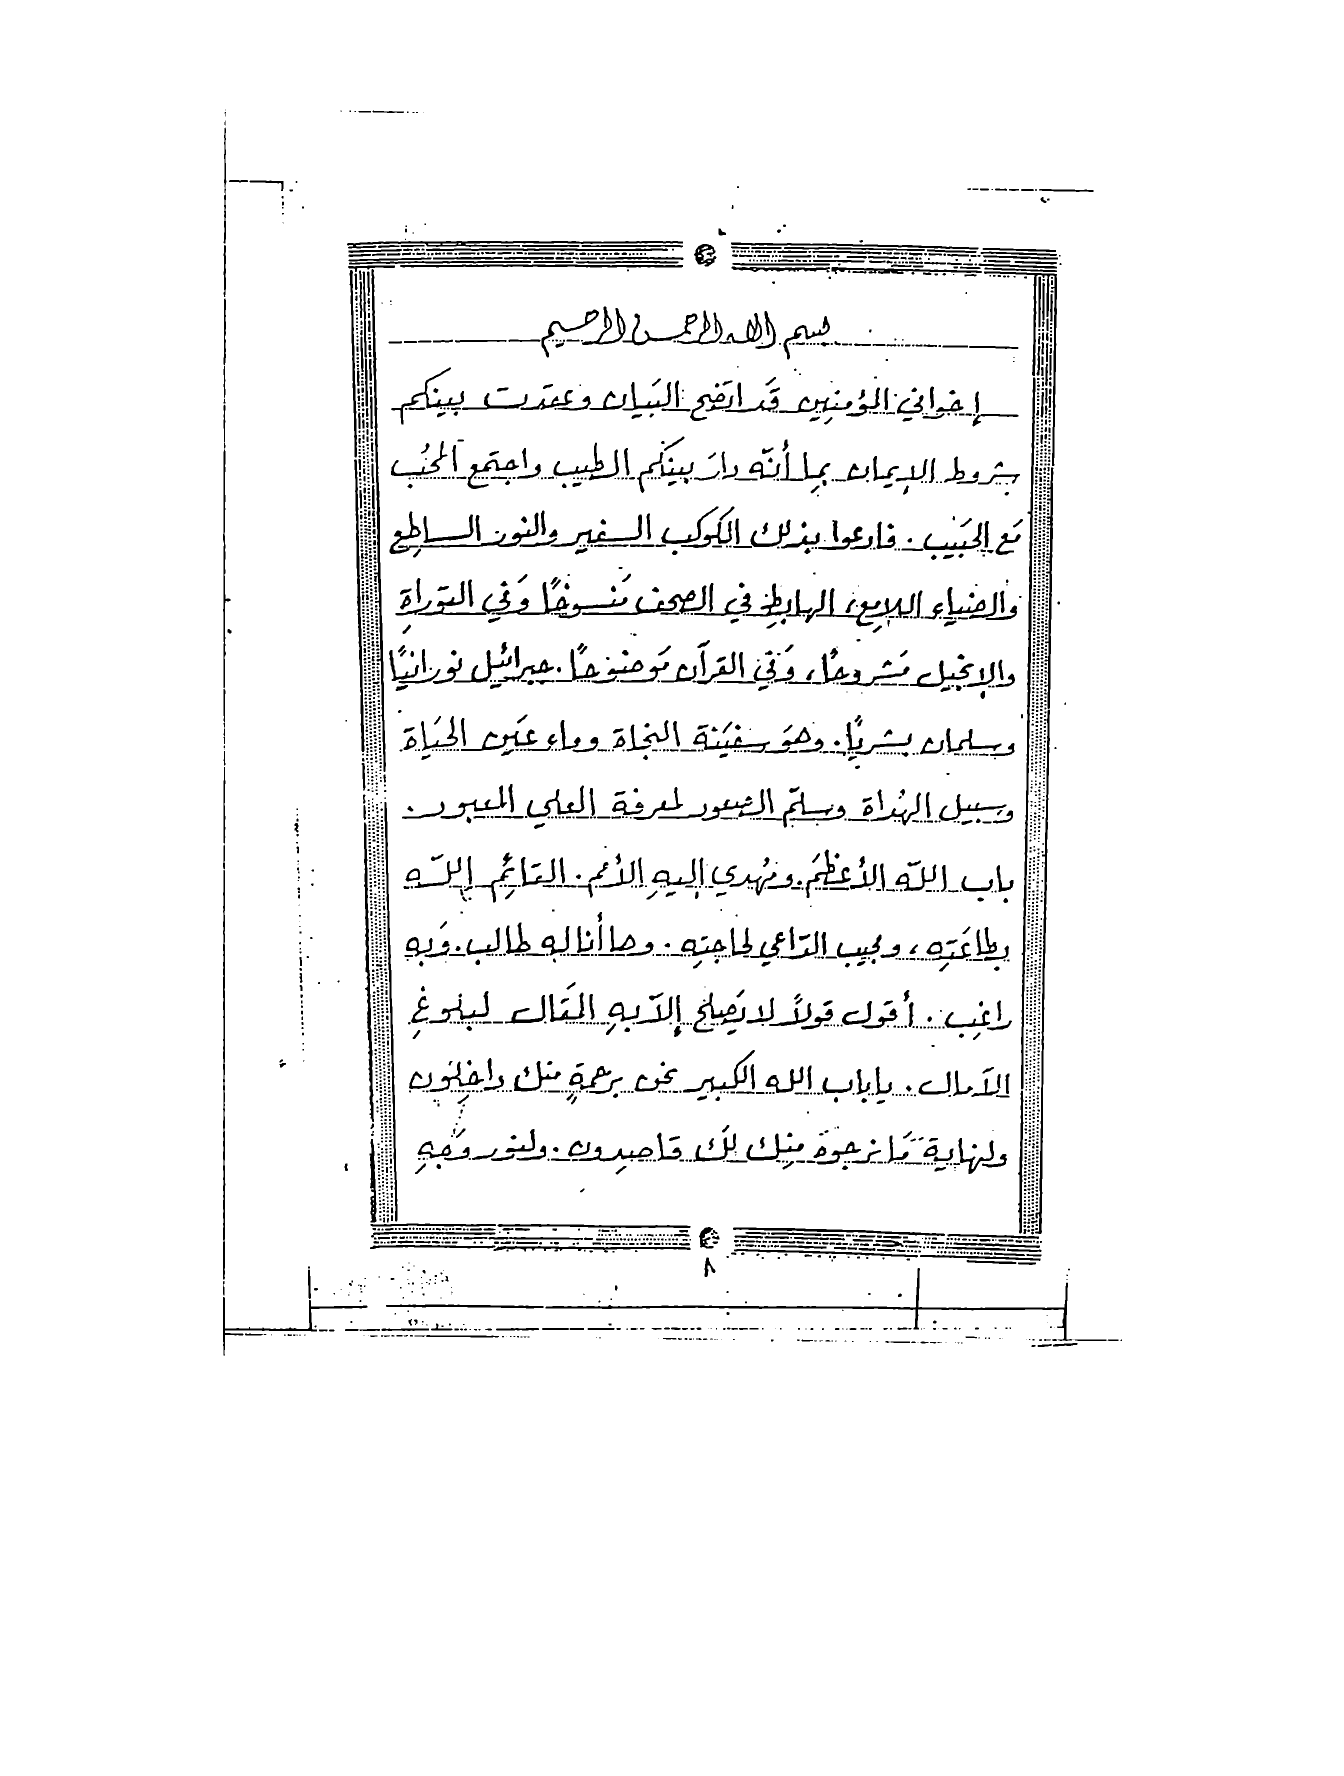 بسم الله الرحمن الرحيم
إخواني المؤمنين قَد اتضح البَيان وعقدت بينكم
شروط الإيمان بما أنّه دارَ بينكم الطيب واجتمع المحُب
مَع الحَبَيب . فادعوا بذلك الكوكب السفير والنور الساطِع
والضياء اللامِع، الهابِط في الصحف مَنسوخًا وَفي التوراةِ
والإنجيل مَشروحًا، وَفي القرآن مَوضوحًا . جبرائيل نورانيًا
وسلمان بشريًا . وهوَ سفيَنة النجاة وماء عَين الحيَاة
وسبيل الهُداة وسلّم الصعود لمعرفة العلي المعبود .
باب اللّه الأعظَم . ومُهدي إليهِ الأمم . القائِم إللّه
بطاعَتِه ، ومجيب الدّاعي لحاجتِه . وها أنا له طالب . وَبه
راغِب . أقول قولاً لا يَصِلح إلاّ بهِ المقَال لبلوغِ
الآمال . يا باب الله الكبير نحن برحمةٍ منك داخِلون
ولنهاية مَا نرجوهُ مِنك لَك قاصِدون . ولنور وَجهِ
٨